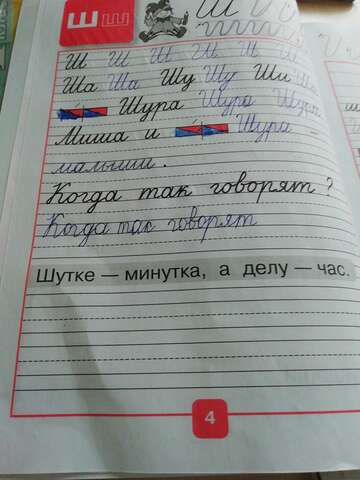 Ш ш
Ш Ш Ш Ш Ш Ш
Ша Ша Шу Шу Ши Ши
Шура Шура Шура
Миша и Шура
малыши.
Когда так говорят?
Когда так говорят
Шутке — минутка, а делу — час.
4